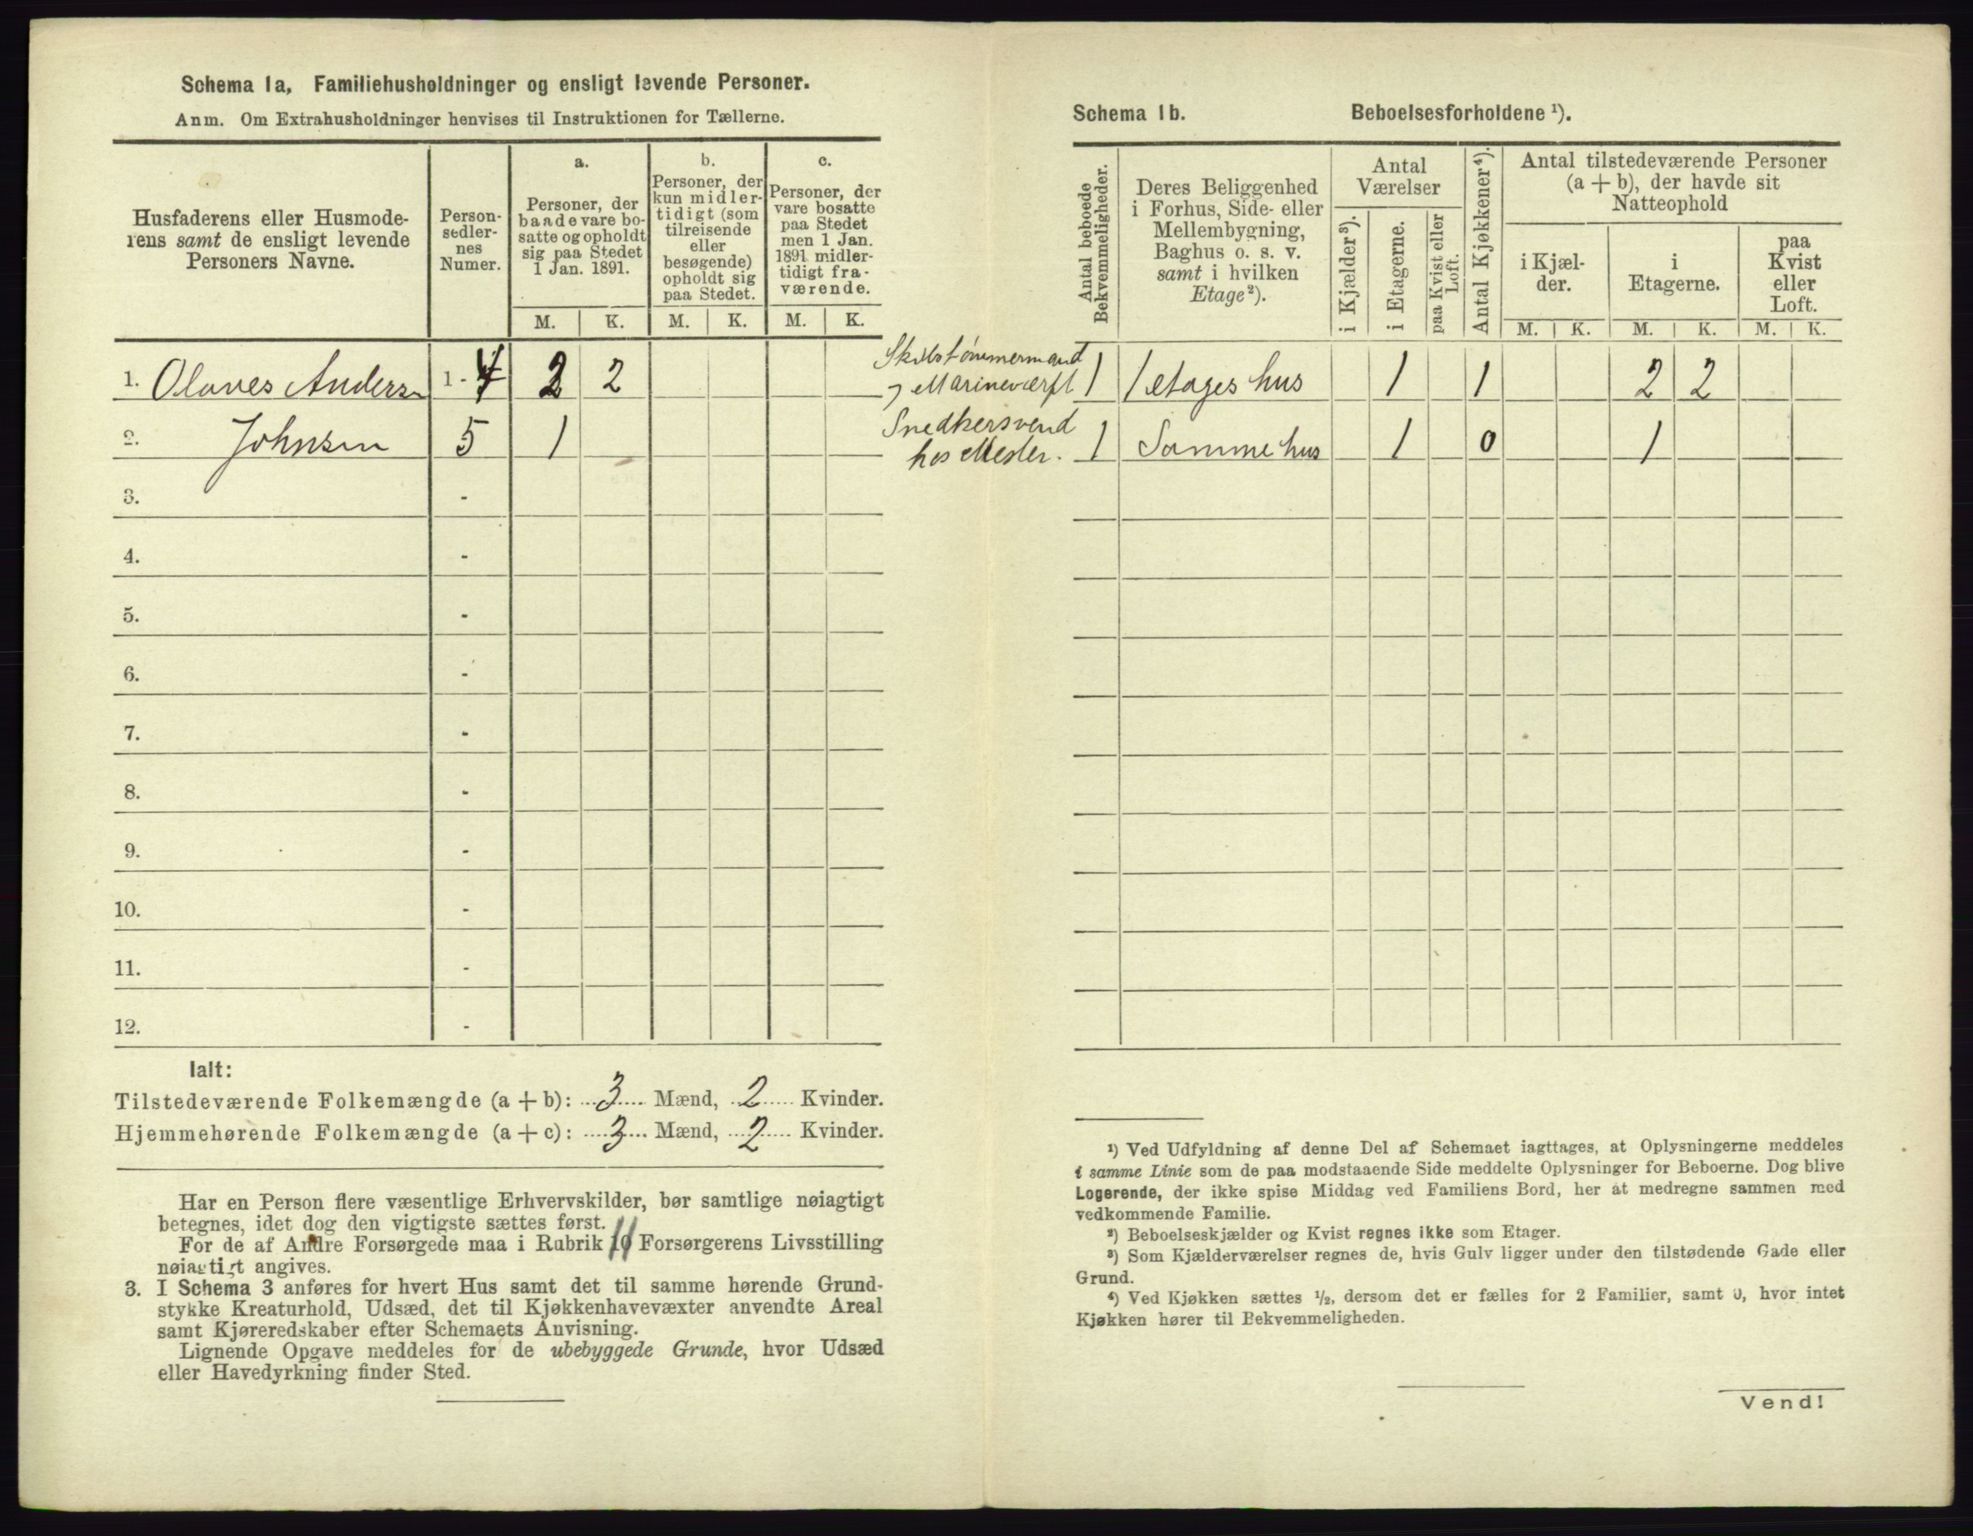 Schema 1a, Familiehusholdninger og ensligt levende Personer.
Anm. Om Extrahusholdninger henvises til Instruktionen for Tællerne.
Husfaderens eller Husmoderens samt de ensligt levende Personers Navne.
Personsedlernes Numer.
a.
Personer, der baade vare bosatte og opholdt sig paa Stedet 1 Jan. 1891.
b.
Personer, der kun midlertidigt (som tilreisende eller besøgende) opholdt sig paa Stedet.
c.
Personer, der vare bosatte paa Stedet men 1 Jan. 1891 midlertidigt fraværende.
M. K. M. K. M. K.
1. Olaves Anders 1 - 4 2 2
2. Johnsen 5 1
3. -
4. -
5. -
6. -
7. -
8. -
9. -
10. -
11. -
12. -
Ialt:
Tilstedeværende Folkemængde (a + b): 3 Mænd, 2 Kvinder.
Hjemmehørende Folkemængde (a + c): 3 Mænd, 2 Kvinder.
Har en Person flere væsentlige Erhvervskilder, bør samtlige nøiagtigt
betegnes, idet dog den vigtigste sættes først.
For de af Andre Forsørgede maa i Rubrik 11 Forsørgerens Livsstilling
nøiagtigt angives.
3. I Schema 3 anføres for hvert Hus samt det til samme hørende Grund-
stykke Kreaturhold, Udsæd, det til Kjøkkenhavevæxter anvendte Areal
samt Kjøreredskaber efter Schemaets Anvisning.
Lignende Opgave meddeles for de ubebyggede Grunde, hvor Udsæd
eller Havedyrkning finder Sted.
Schema 1b. Beboelsesforholdene ¹).
Antal beboede Bekvemmeligheder.
Deres Beliggenhed i Forhus, Side- eller Mellembygning, Baghus o. s. v. samt i hvilken Etage²).
Antal Værelser
i Kjælder³).
i Etagerne.
paa Kvist eller Loft.
Antal Kjøkkener⁴).
Antal tilstedeværende Personer (a + b), der havde sit Natteophold
i Kjælder.
i Etagerne.
paa Kvist eller Loft.
M. K. M. K. M. K.
Skibstømmermand
Marineværft 1 1 etages hus 1 1 2 2
Snedkersvend
hos Mester. 1 Samme hus 1 0 1
¹) Ved Udfyldning af denne Del af Schemaet iagttages, at Oplysningerne meddeles
i samme Linie som de paa modstaaende Side meddelte Oplysninger for Beboerne. Dog blive
Logerende, der ikke spise Middag ved Familiens Bord, her at medregne sammen med
vedkommende Familie.
²) Beboelseskjælder og Kvist regnes ikke som Etager.
³) Som Kjælderværelser regnes de, hvis Gulv ligger under den tilstødende Gade eller
Grund.
⁴) Ved Kjøkken sættes ½, dersom det er fælles for 2 Familier, samt 0, hvor intet
Kjøkken hører til Bekvemmeligheden.
Vend!